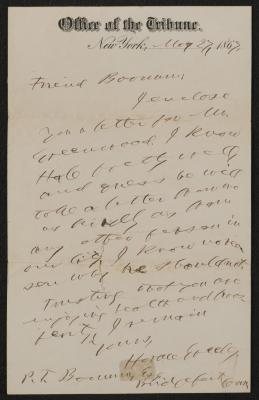 Office of the Tribune.
New York, May 27, 1867.
Friend Barnum,
I enclose
you a letter for Mr.
Greenwood. I know
Hale pretty well
and guess he will
take a letter from me
as kindly as from
any other person in
our city. I know no rea
son why he should not.
Trusting that you are
enjoying health and
I remain
Yours,
Horace Greeley.
P. T. Barnum, Esq.
Bridgeport, Conn.